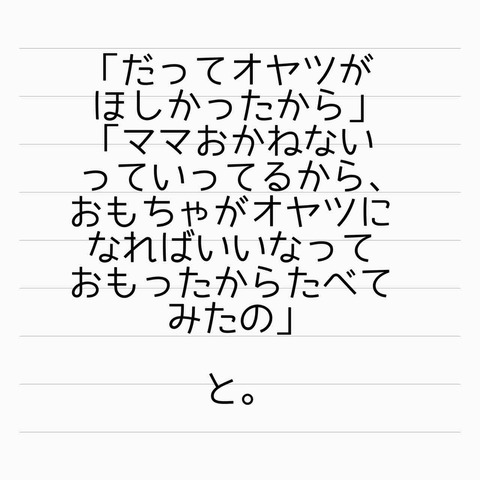 「だってオヤツが
ほしかったから」
「ママおかねない
っていってるから、
おもちゃがオヤツに
なればいいなって
おもったからたべて
みたの」
と。